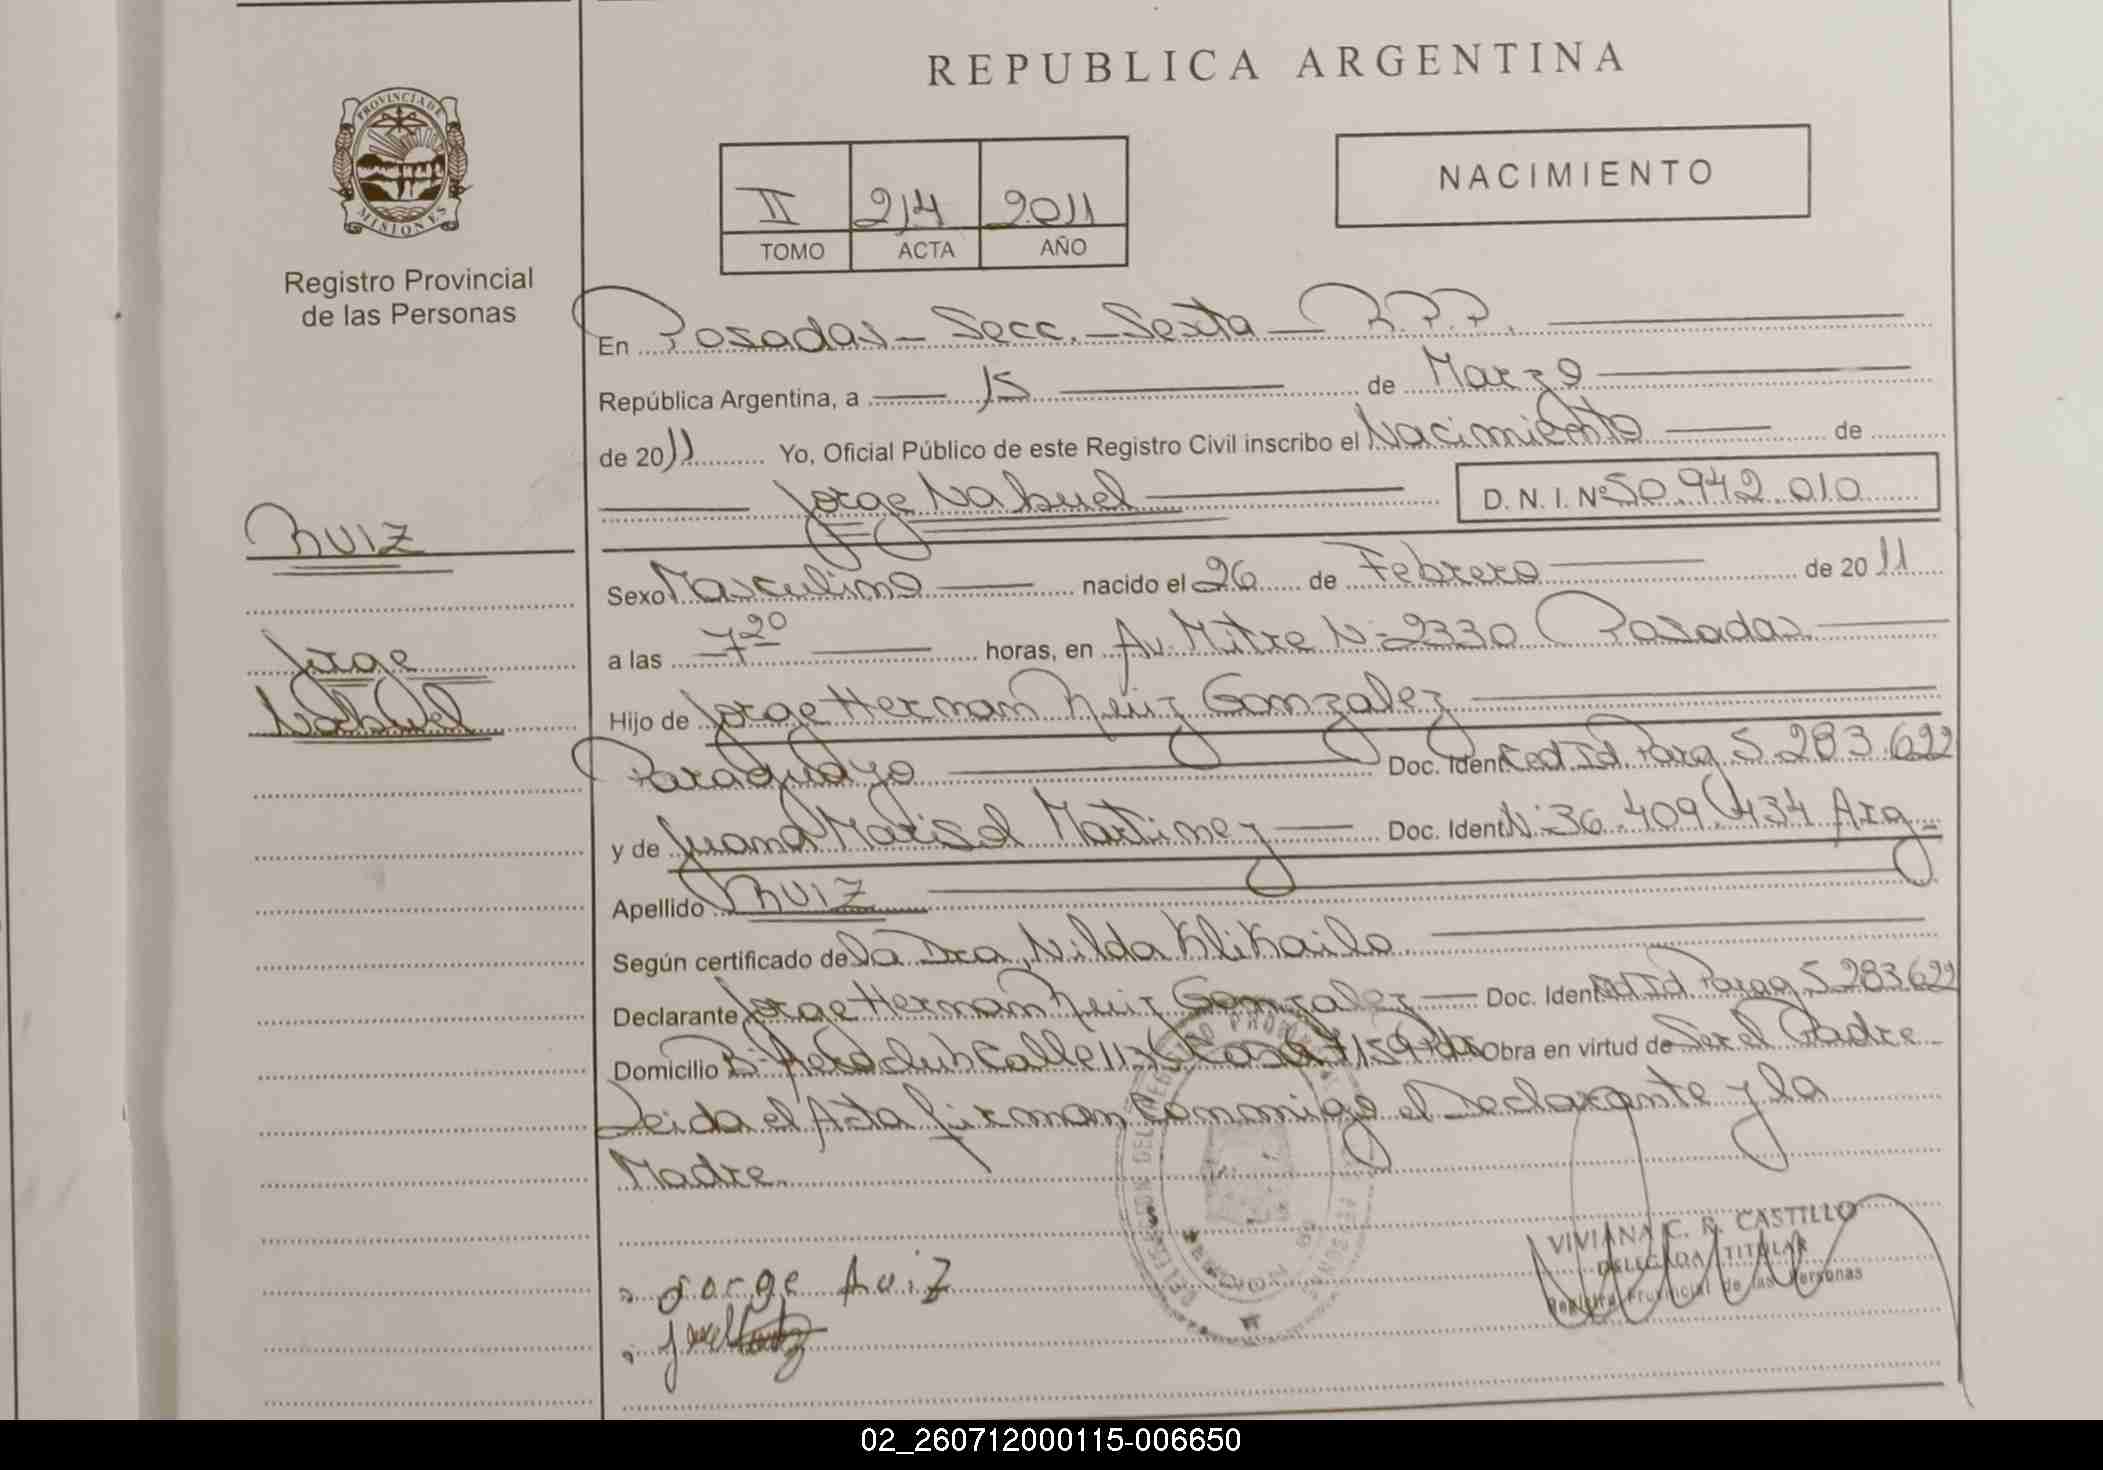 REPUBLICA ARGENTINA
PROVINCIA DE
MISIONES
Registro Provincial
de las Personas
NACIMIENTO
II 214 2011
TOMO ACTA AÑO
En Posadas - Secc. - Sexta - R.P.P.
República Argentina, a 15 de Marzo
de 2011 Yo, Oficial Público de este Registro Civil inscribo el Nacimiento de
Jorge Nahuel D. N. I. Nº 50.942.010
RUIZ
Jorge
Nahuel
Sexo Masculino nacido el 26 de Febrero de 2011
a las 7 20 horas, en Av. Mitre Nº 2330 Posadas
Hijo de Jorge Hernan Ruiz Gonzalez
Paraguayo Doc. Ident. Ced Id Parag 5.283.622
y de Juana Marisel Martinez Doc. Ident. Nº 36.409.434 Arg.
Apellido RUIZ
Según certificado de la Dra. Nilda
Declarante Jorge Hernan Ruiz Gonzalez Doc. Ident. Ced Id Parag 5.283.622
Domicilio Bº Aeroclub Calle Casa Obra en virtud de Ser el Padre
Leida el Acta firman Conmigo el Declarante y la
Madre.
Jorge Ruiz
VIVIANA C. R. CASTILLO
DELEGADA TITULAR
Registro Provincial de las Personas
02_260712000115-006650